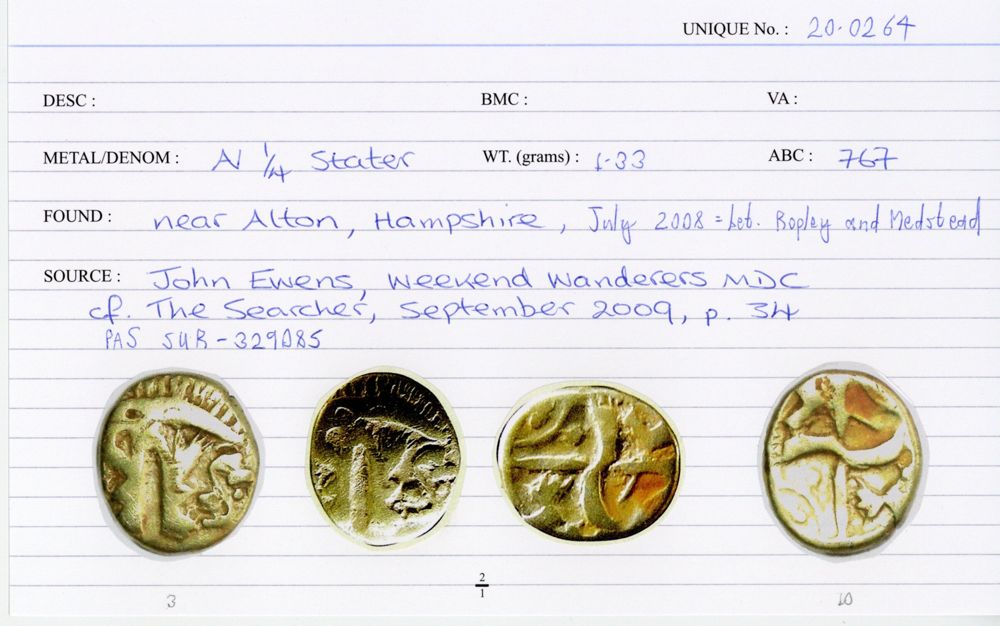 UNIQUE No. : 20.0264
DESC : BMC : VA :
METAL/DENOM : AV 1/4 Stater WT. (grams) : 1.33 ABC : 767
FOUND : near Alton, Hampshire, July 2008 = bet. Ropley and Medstead
SOURCE : John Ewens, Weekend Wanderers MDC
cf. The Searcher, September 2009, p. 34
PAS SUR-329085
2
1
3 10